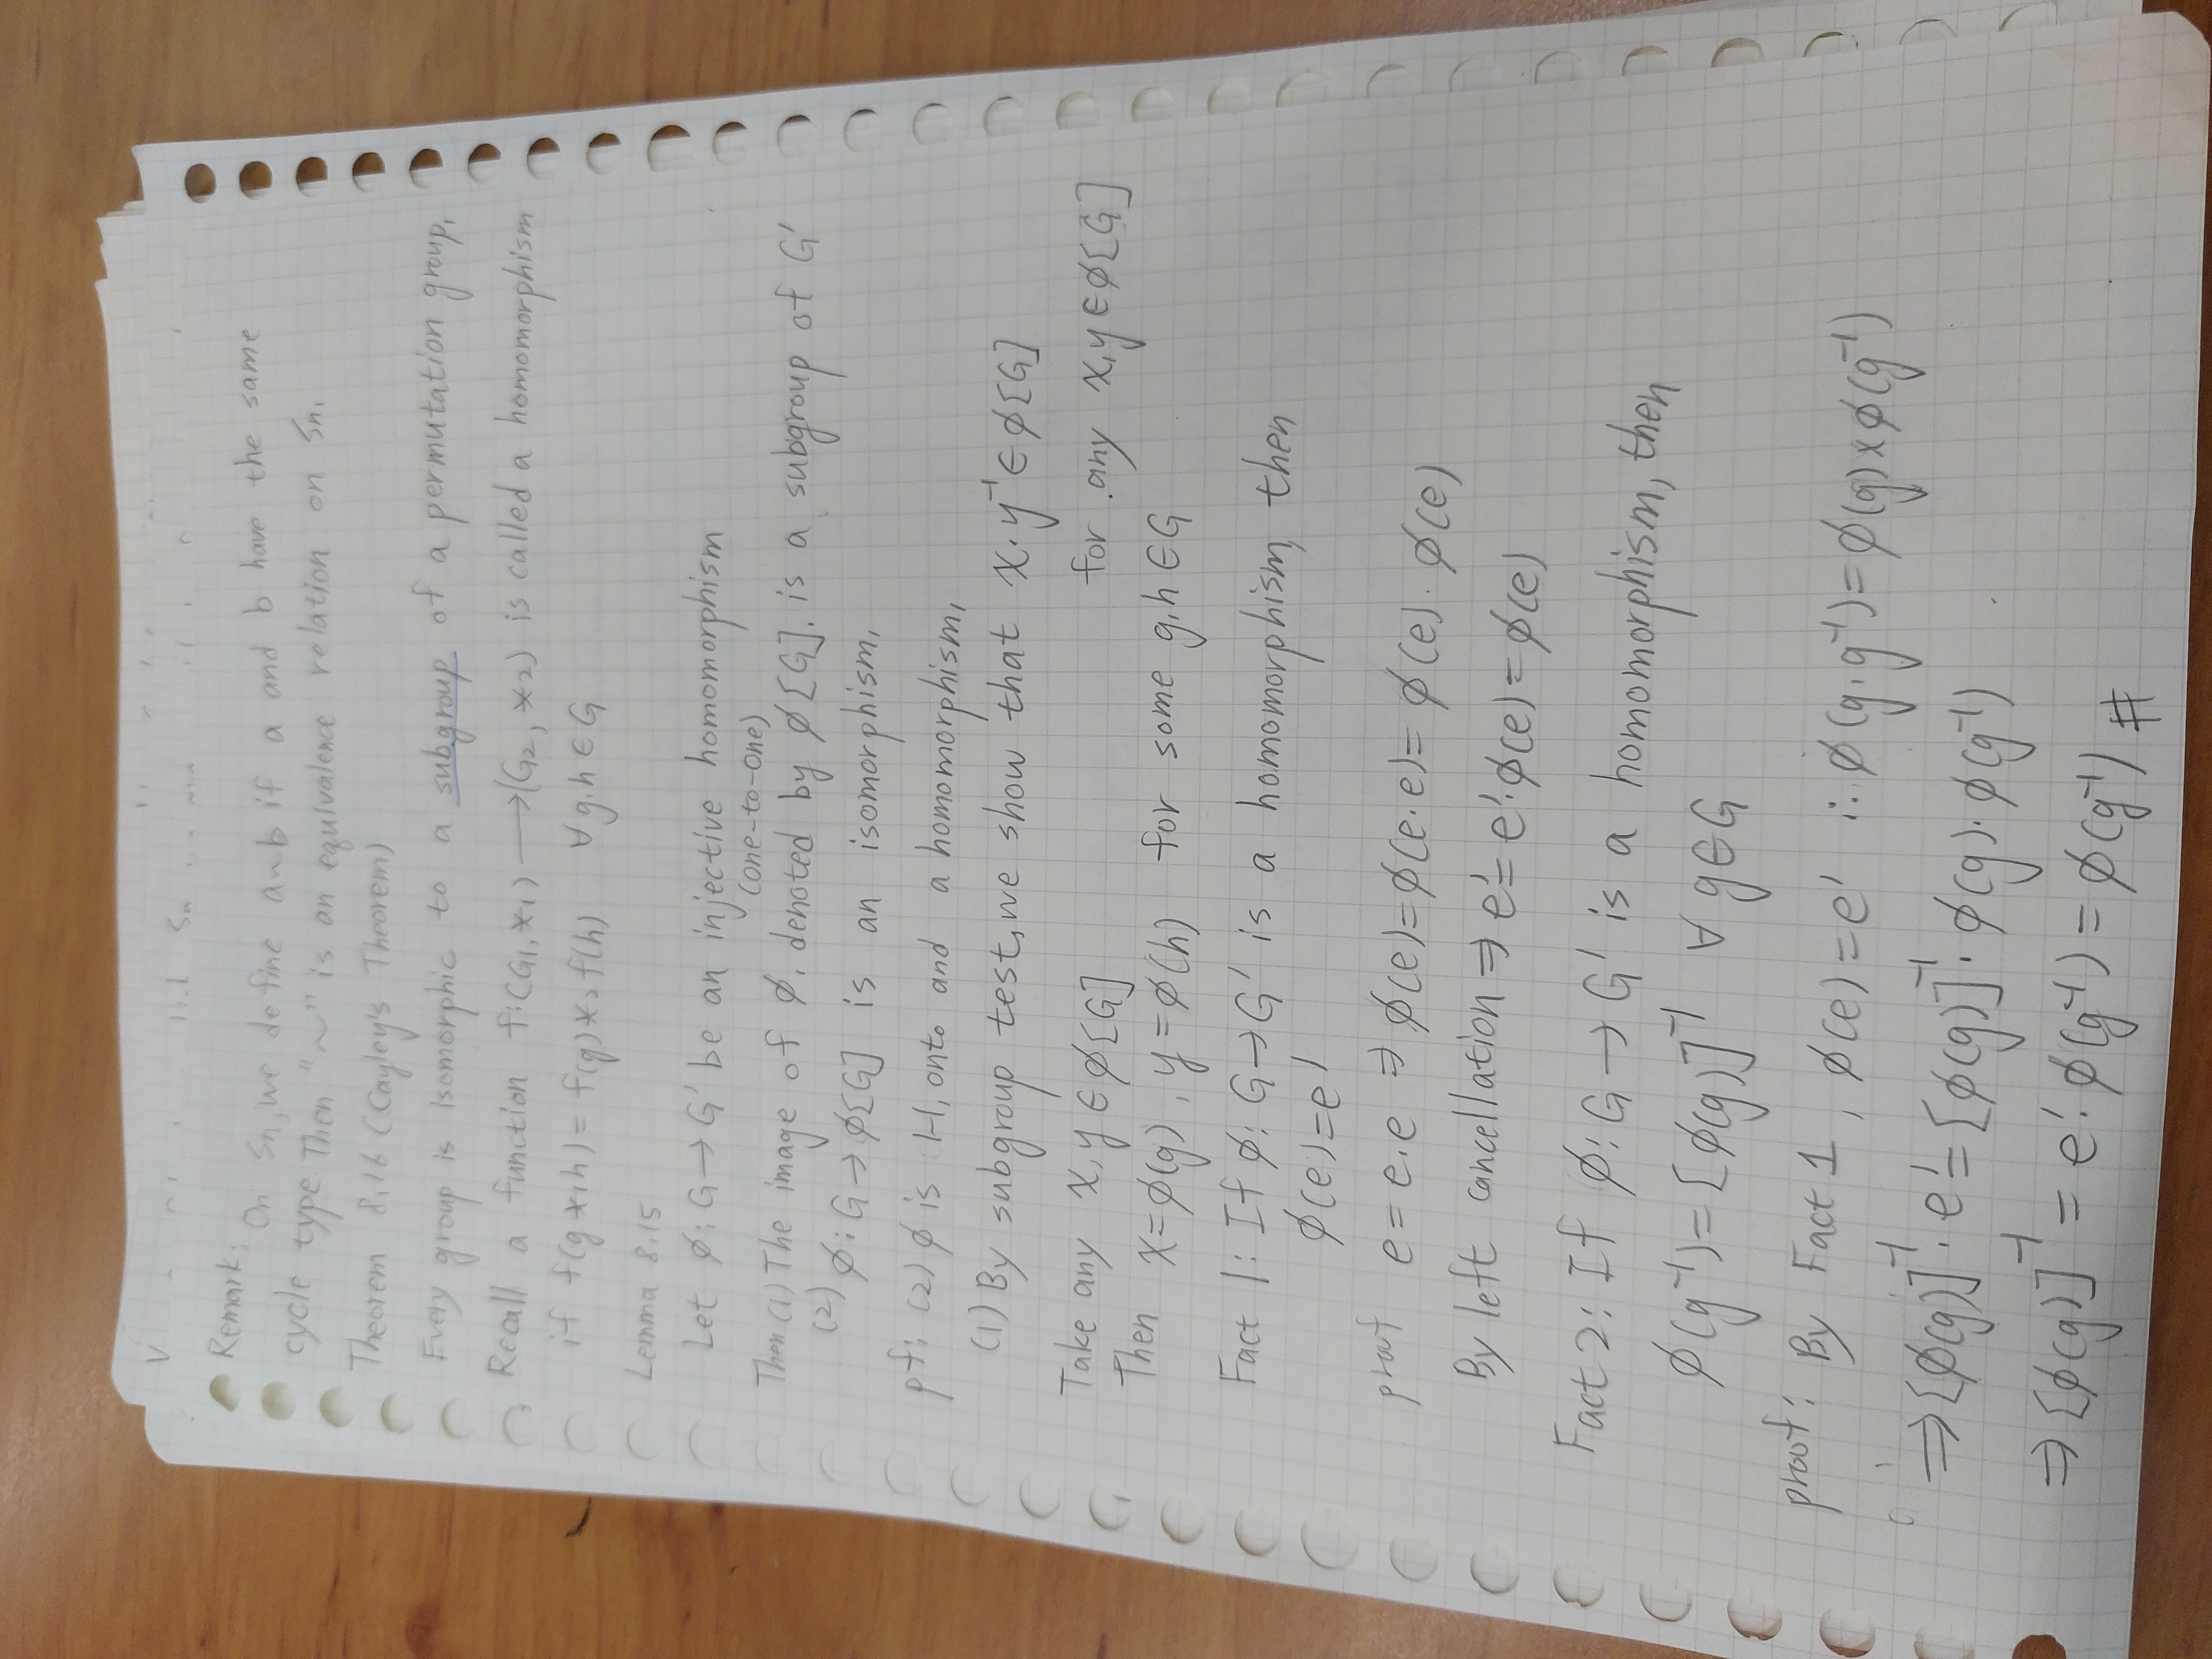 Remark:
On Sn, we define a~b if a and b have the same
cycle type. Then "~" is an equilvalence relation on Sn.
Theorem 8.16 (Cayley's Theorem)
Every group is isomorphic to a subgroup of a permutation group.
Recall a function f:(G1,*1)→(G2,*2) is called a homomorphism
if f(g*1h)=f(g)*2f(h) ∀g,h∈G
Lemma 8.15
Let φ:G→G' be an injective homomorphism
(one-to-one)
Then (1) The image of φ, denoted by φ[G], is a subgroup of G'
(2) φ:G→φ[G] is an isomorphism.
pf: (2) φ is 1-1, onto and a homomorphism.
(1) By subgroup test, we show that x·y⁻¹∈φ[G]
for any x,y∈φ[G]
Take any x,y∈φ[G]
Then x=φ(g), y=φ(h) for some g,h∈G
Fact 1: If φ:G→G' is a homomorphism, then
φ(e)=e'
proof e=e·e ⇒ φ(e)=φ(e·e)=φ(e)·φ(e)
By left cancellation ⇒ e'=e'·φ(e)=φ(e)
Fact 2: If φ:G→G' is a homomorphism, then
φ(g⁻¹)=[φ(g)]⁻¹ ∀g∈G
proof: By Fact 1, φ(e)=e' ∴ φ(g·g⁻¹)=φ(g)×φ(g⁻¹)
⇒[φ(g)]⁻¹·e'=[φ(g)]⁻¹·φ(g)·φ(g⁻¹)
⇒[φ(g)]⁻¹=e'·φ(g⁻¹)=φ(g⁻¹) #